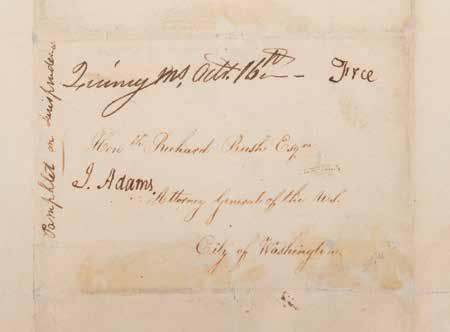 Quincy Ms, Octr. 16th — Free
Honble. Richard Rush Esqre
J. Adams.
Attorney General of the U.S.
City of Washington
Pamphlet on Jurisprudence